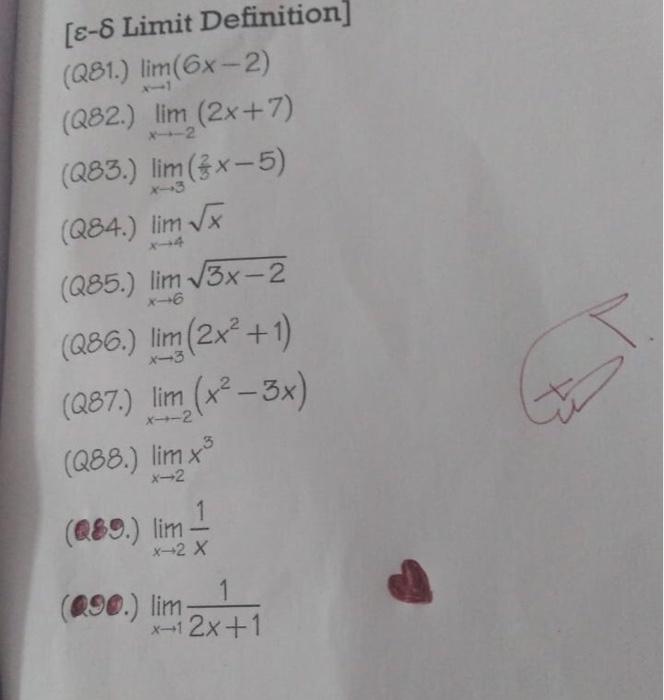 [ε-δ Limit Definition]
(Q81.) lim x→1 (6x−2)
(Q82.) lim x→−2 (2x+7)
(Q83.) lim x→3 (2/3 x−5)
(Q84.) lim x→4 √x
(Q85.) lim x→6 √(3x−2)
(Q86.) lim x→3 (2x²+1)
(Q87.) lim x→−2 (x²−3x)
(Q88.) lim x→2 x³
(Q89.) lim x→2 1/x
(Q90.) lim x→1 1/(2x+1)